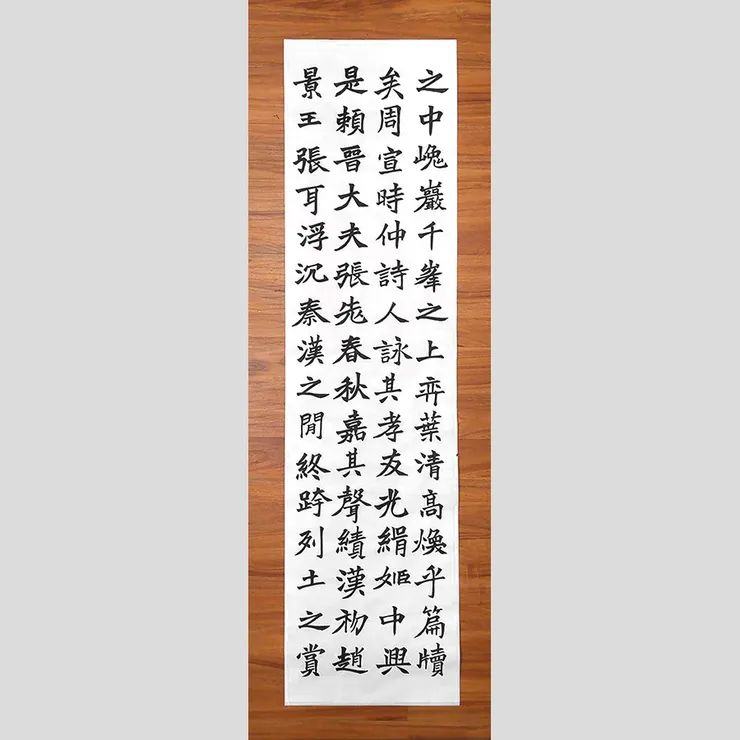 之中巉巖千峯之上弈葉清高煥乎篇牘
矣周宣時仲詩人詠其孝友光緝姬中興
是賴晉大夫張老春秋嘉其聲績漢初趙
景王張耳浮沉秦漢之閒終跨列土之賞